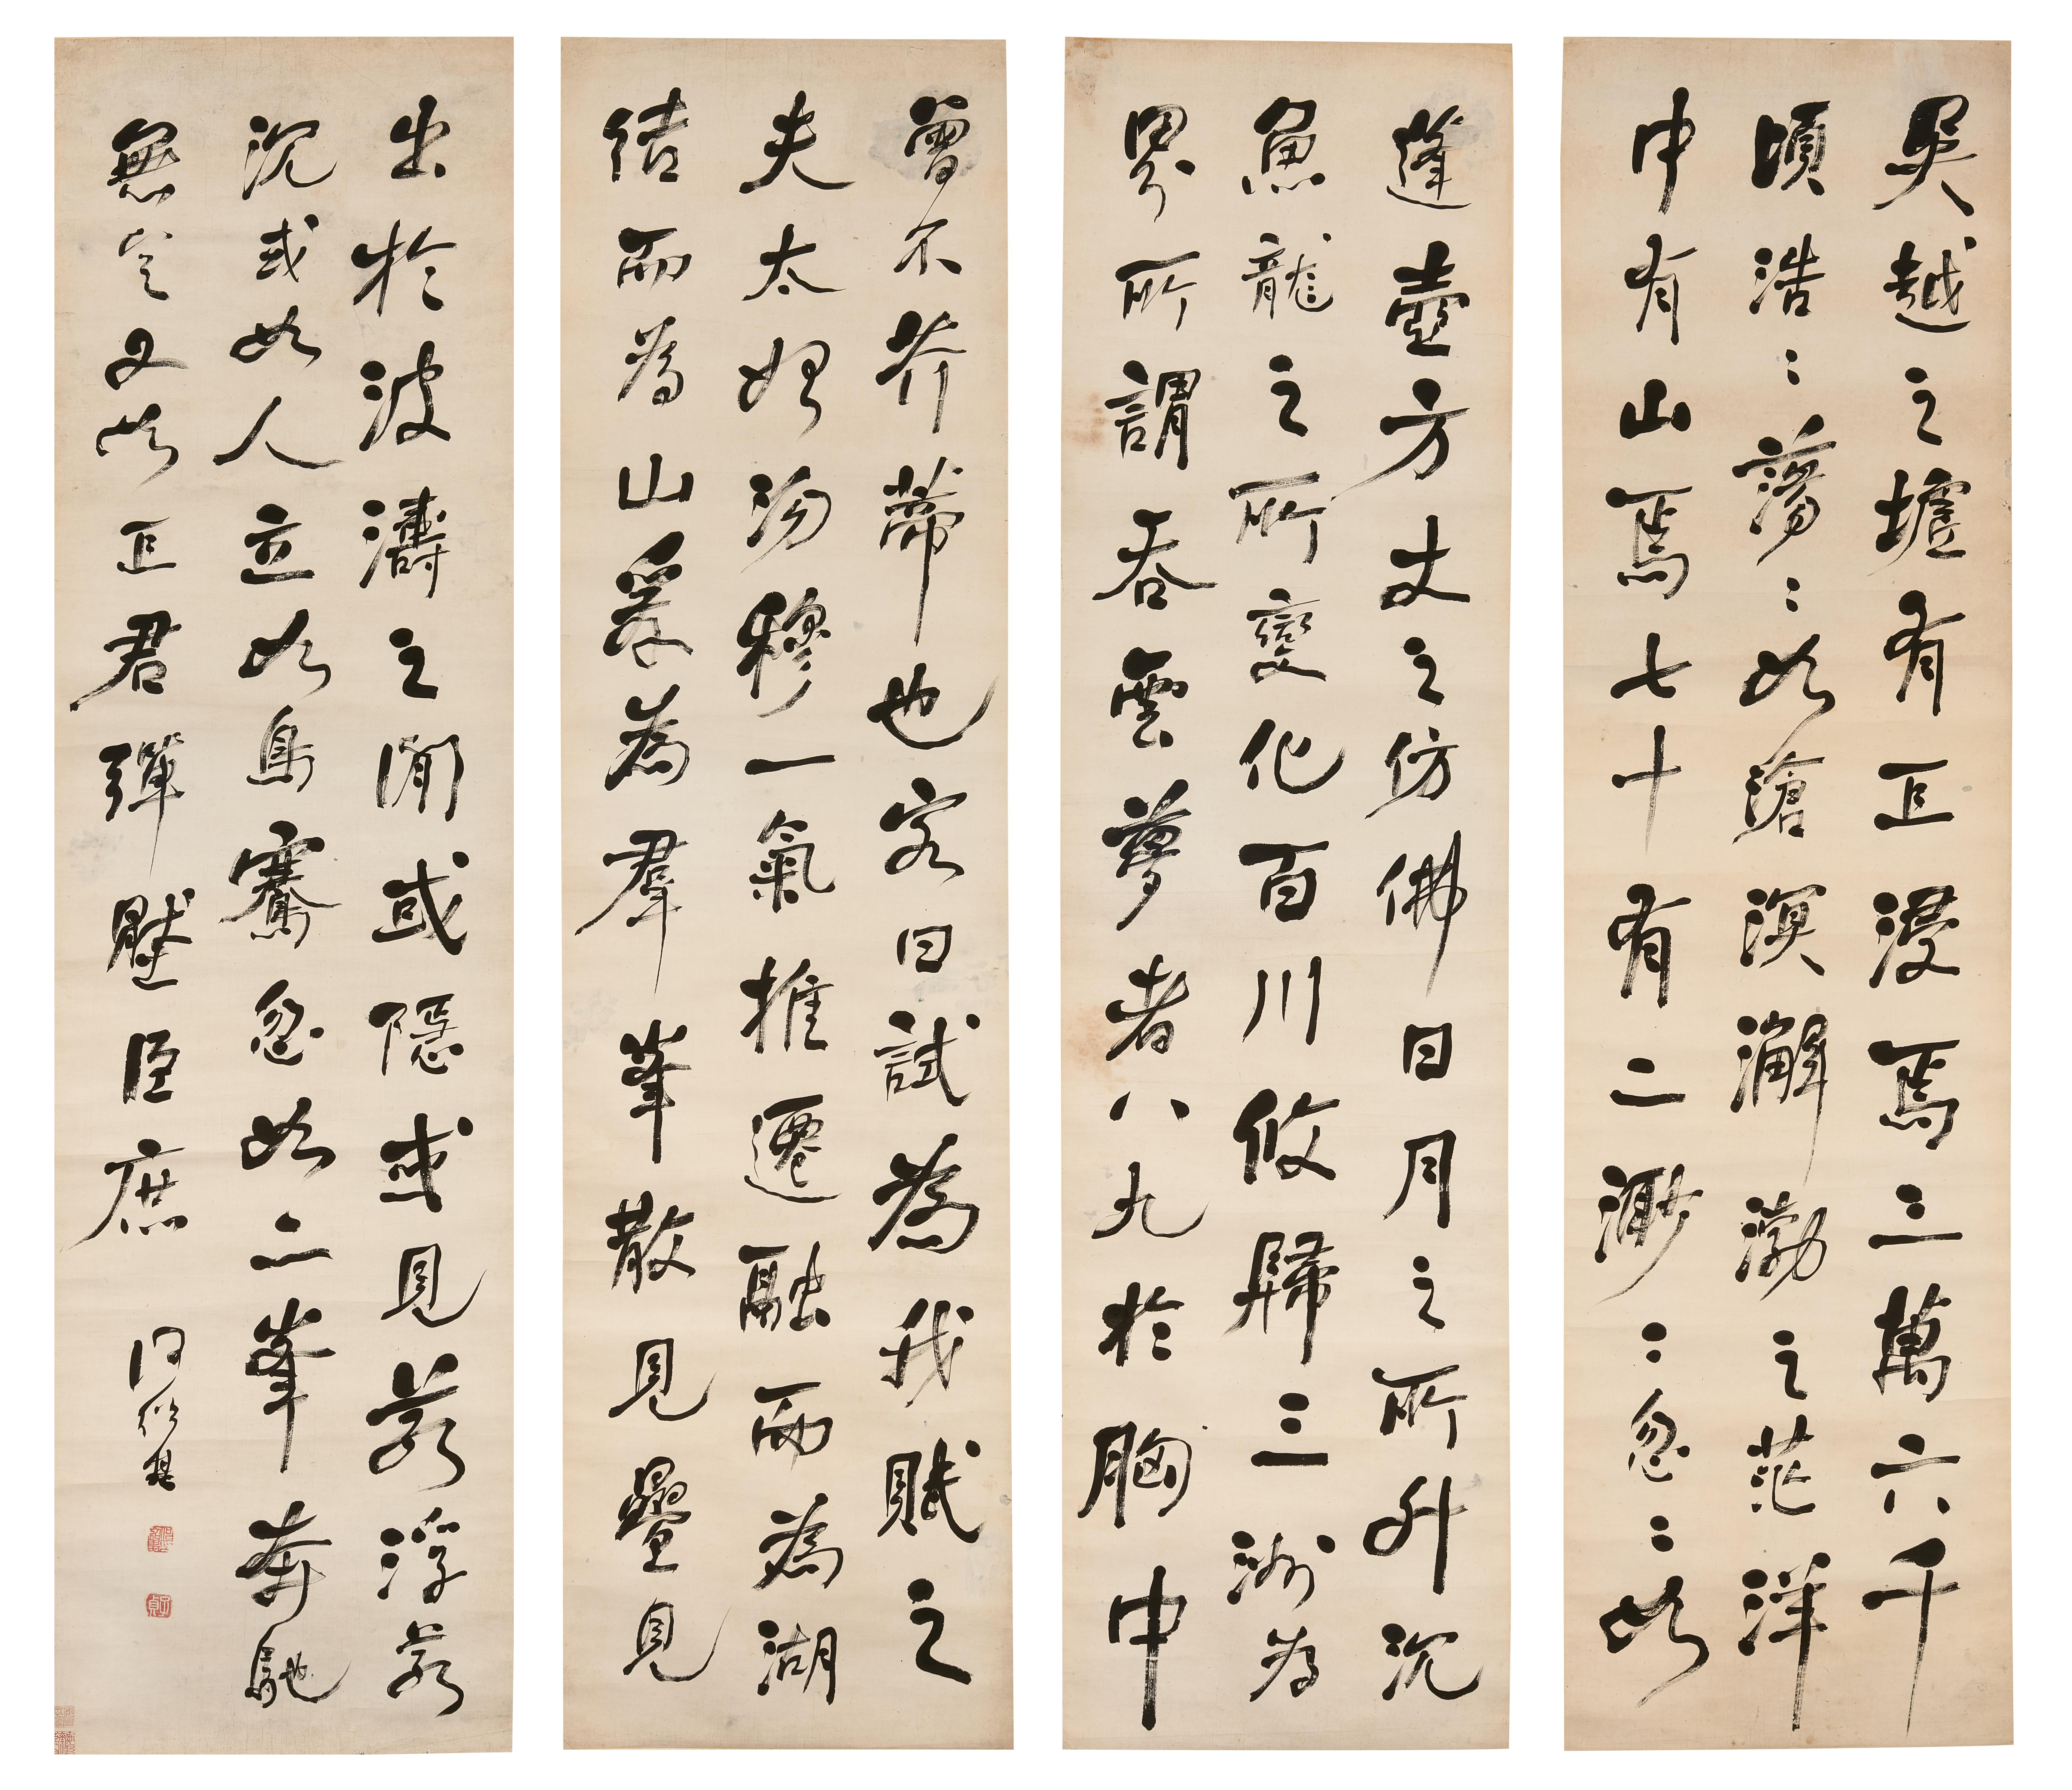 吳越之墟有巨浸焉三萬六千
頃浩〻蕩〻如滄溟澥渤之茫洋
中有山焉七十有二渺〻忽〻如
蓬壺方丈之仿佛日月之所升沉
魚龍之所變化百川攸歸三洲為
界所謂吞雲夢者八九於胸中
曾不芥蒂也客曰試為我賦之
夫太始沕穆一氣推遷融而為湖
結而為山爰為群峯散見疊見
出於波濤之間或隱或見若浮若
沉或如人立如鳥騫忽如二峯奔馳
無定又如正君彈壓臣庶
何紹基